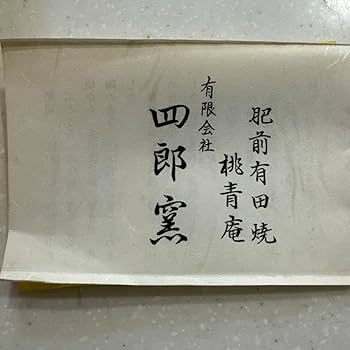 肥前有田焼
桃青庵
有限会社
四郎窯